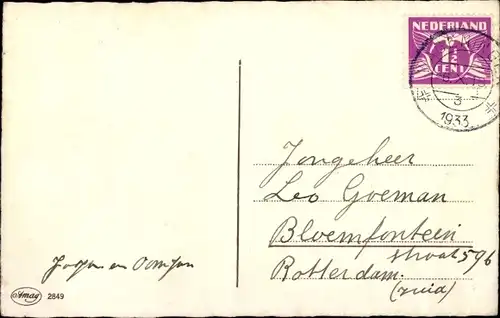 NEDERLAND
1½
CENT
3
1933
Jongeheer
Leo Goeman
Bloemfontein
straat 596
Rotterdam.
(zuid)
en
Amag 2849